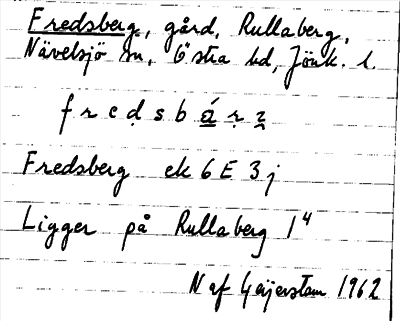 Fredsberg, gård, Rullaberg,
Nävelsjö sn, Östra hd, Jönk. l.
f r e d s b a r
Fredsberg ek 6 E 3 j
Ligger på Rullaberg 1⁴
N af Geijerstam 1962